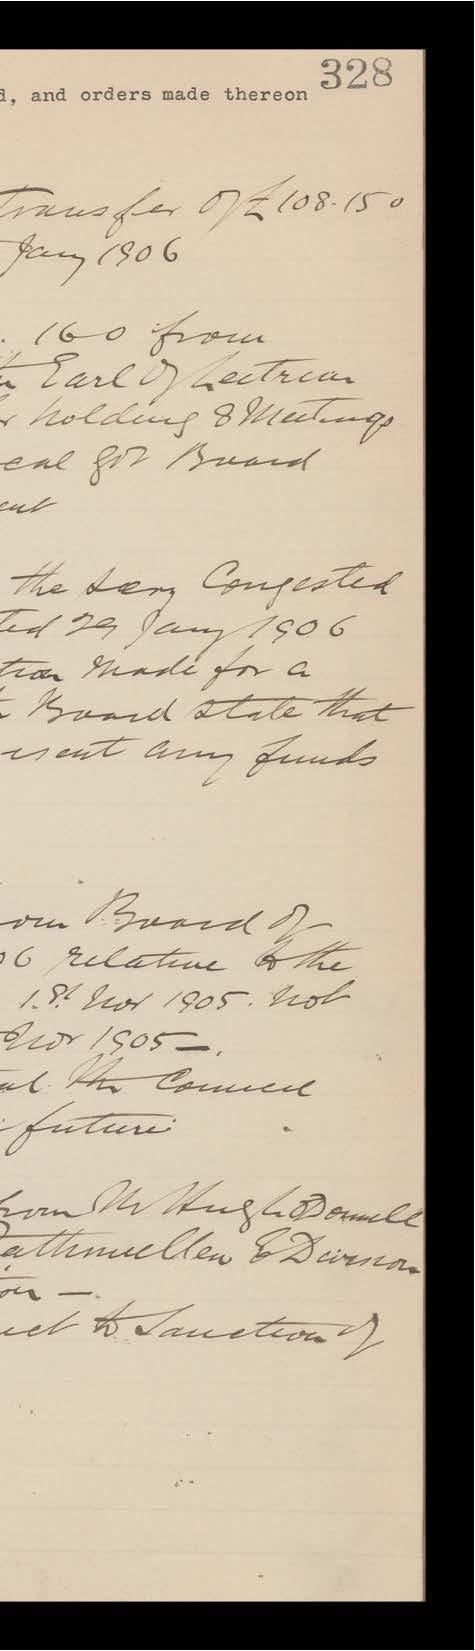 328
d, and orders made thereon
Transfer of £108.15 0
Jany 1906
. 160 from
Earl of Leitrim
r holding 8 Meetings
cal Govt Board
ent
the Secy Congested
ted 29 Jany 1906
tion made for a
Board state that
resent any funds
om Board of
06 relative to the
1st Nov 1905. not
Nov 1905 —.
the Council
future
from Mr Hugh O'Donnell
Rathmullen E Division
ion —
ect to Sanction of